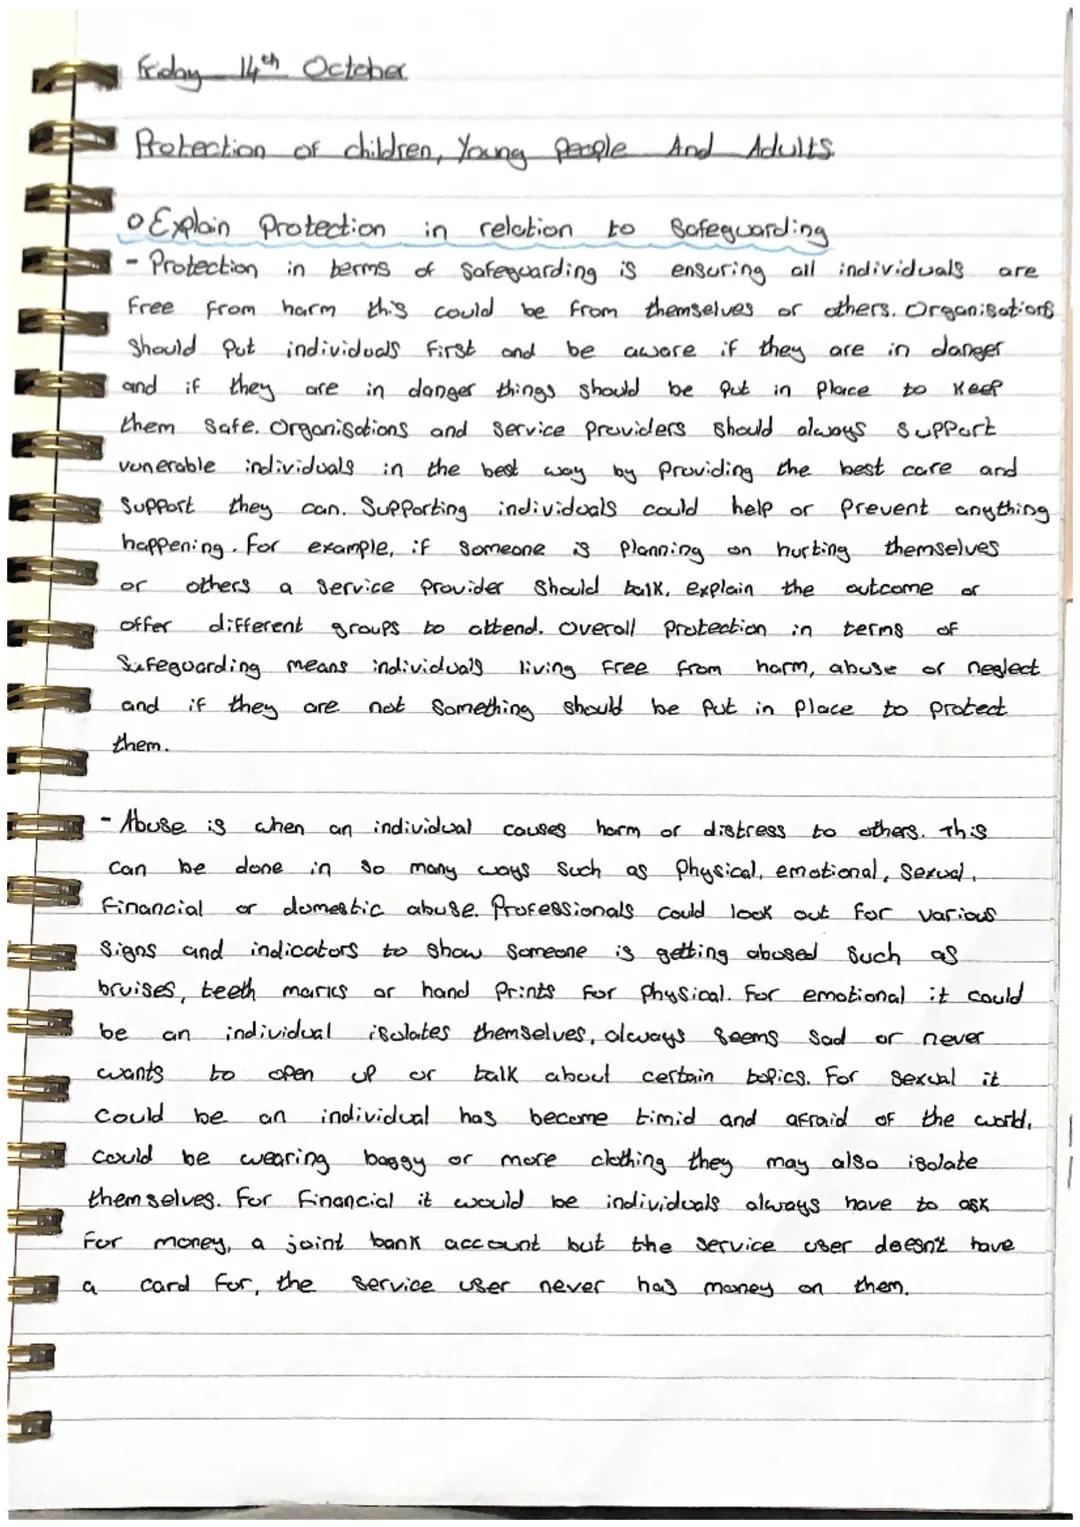 Friday 14th October
Protection of children, Young People And Adults.
Explain Protection in relation to Safeguarding
- Protection in terms of safeguarding is ensuring all individuals are
free from harm this could be from themselves or others. Organisations
should put individuals first and be aware if they are in danger
and if they are in danger things should be put in place to keep
them safe. Organisations and service providers should always support
vunerable individuals in the best way by providing the best care and
support they can. Supporting individuals could help or prevent anything
happening. For example, if someone is planning on hurting themselves
or others a service provider should talk, explain the outcome or
offer different groups to attend. Overall protection in terms of
Safeguarding means individuals living free from harm, abuse or neglect
and if they are not something should be put in place to protect
them.
- Abuse is when an individual causes harm or distress to others. This
can be done in so many ways such as physical, emotional, sexual,
financial or domestic abuse. Professionals could look out for various
signs and indicators to show someone is getting abused such as
bruises, teeth marks or hand prints for physical. For emotional it could
be an individual isolates themselves, always seems sad or never
wants to open up or talk about certain topics. For sexual it
could be an individual has become timid and afraid of the world,
could be wearing baggy or more clothing they may also isolate
themselves. For financial it would be individuals always have to ask
for money, a joint bank account but the service user doesn't have
a card for, the service user never has money on them.